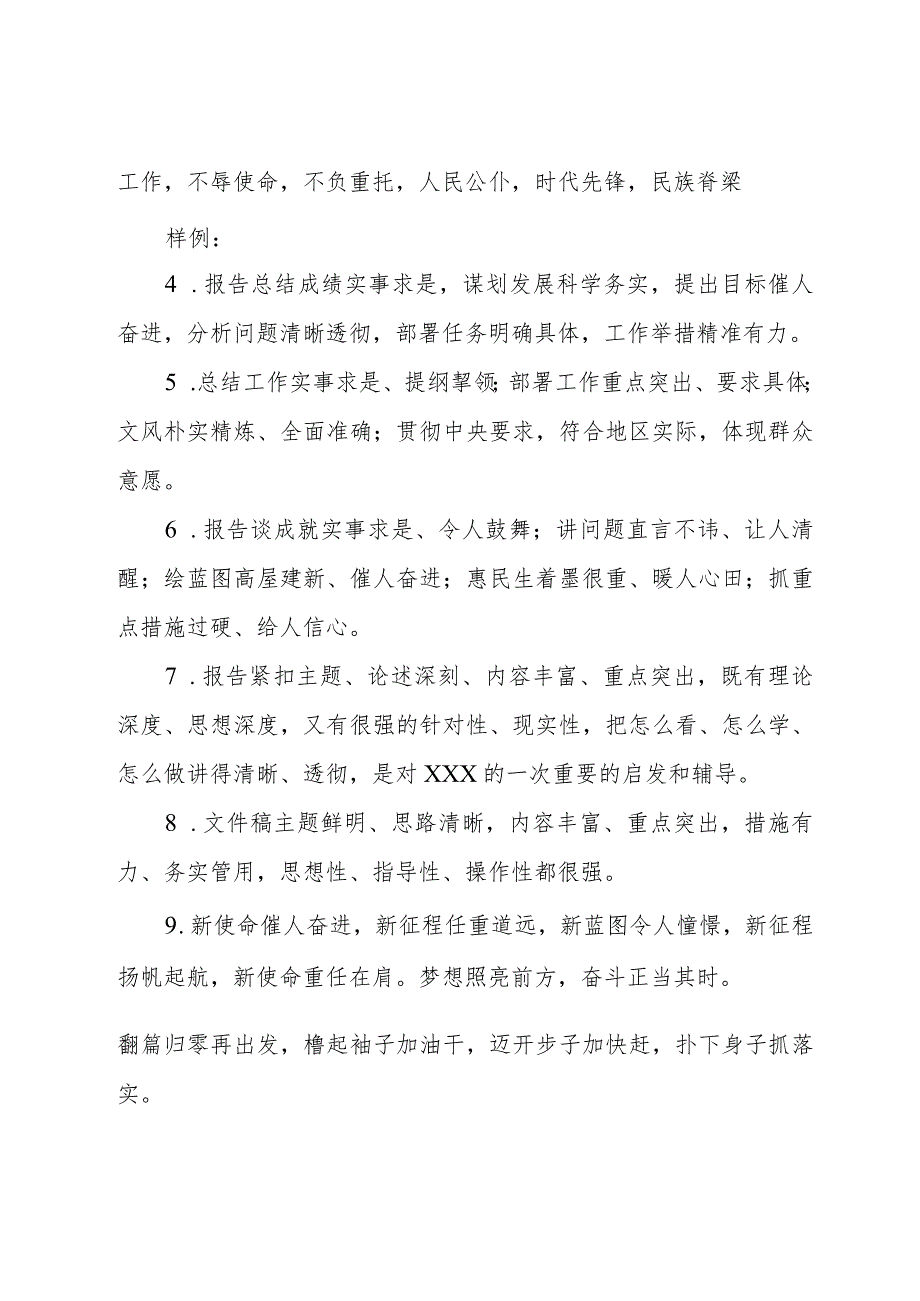 工作，不辱使命，不负重托，人民公仆，时代先锋，民族脊梁
样例：
4 .报告总结成绩实事求是，谋划发展科学务实，提出目标催人
奋进，分析问题清晰透彻，部署任务明确具体，工作举措精准有力。
5 .总结工作实事求是、提纲挈领；部署工作重点突出、要求具体；
文风朴实精炼、全面准确；贯彻中央要求，符合地区实际，体现群众
意愿。
6 .报告谈成就实事求是、令人鼓舞；讲问题直言不讳、让人清
醒；绘蓝图高屋建新、催人奋进；惠民生着墨很重、暖人心田；抓重
点措施过硬、给人信心。
7 .报告紧扣主题、论述深刻、内容丰富、重点突出，既有理论
深度、思想深度，又有很强的针对性、现实性，把怎么看、怎么学、
怎么做讲得清晰、透彻，是对 XXX 的一次重要的启发和辅导。
8 .文件稿主题鲜明、思路清晰，内容丰富、重点突出，措施有
力、务实管用，思想性、指导性、操作性都很强。
9. 新使命催人奋进，新征程任重道远，新蓝图令人憧憬，新征程
扬帆起航，新使命重任在肩。梦想照亮前方，奋斗正当其时。
翻篇归零再出发，橹起袖子加油干，迈开步子加快赶，扑下身子抓落
实。